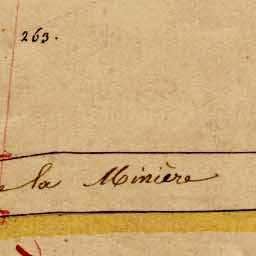 263.
la Minière